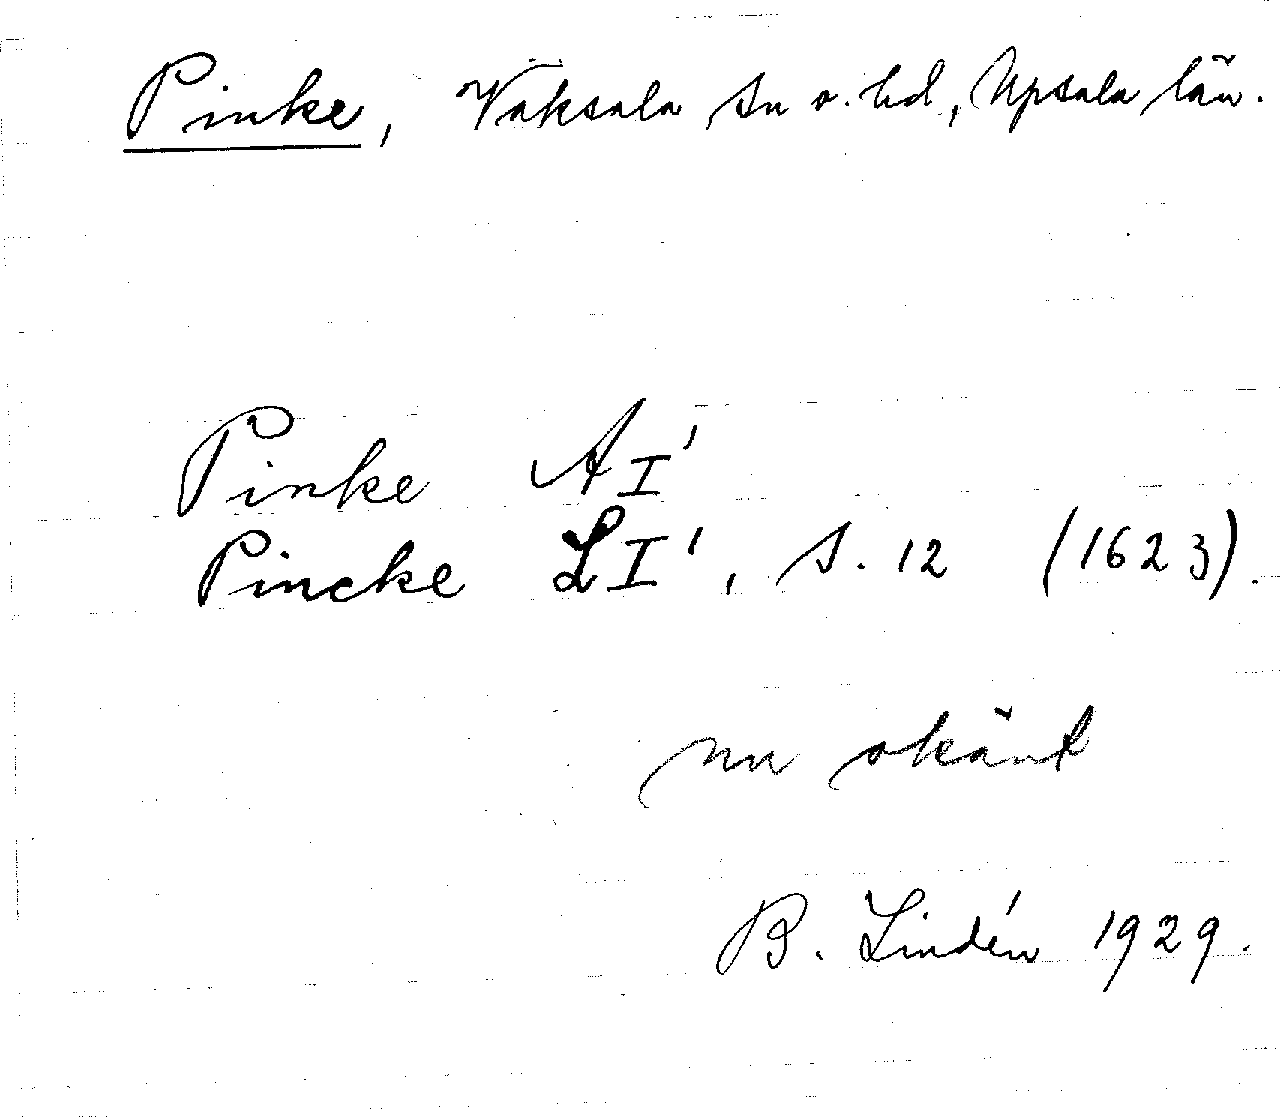 Pinke, Vaksala sn o. hd, Upsala län.
Pinke AI'
Pincke LI', s. 12 (1623).
nu okänt
B. Lindén 1929.